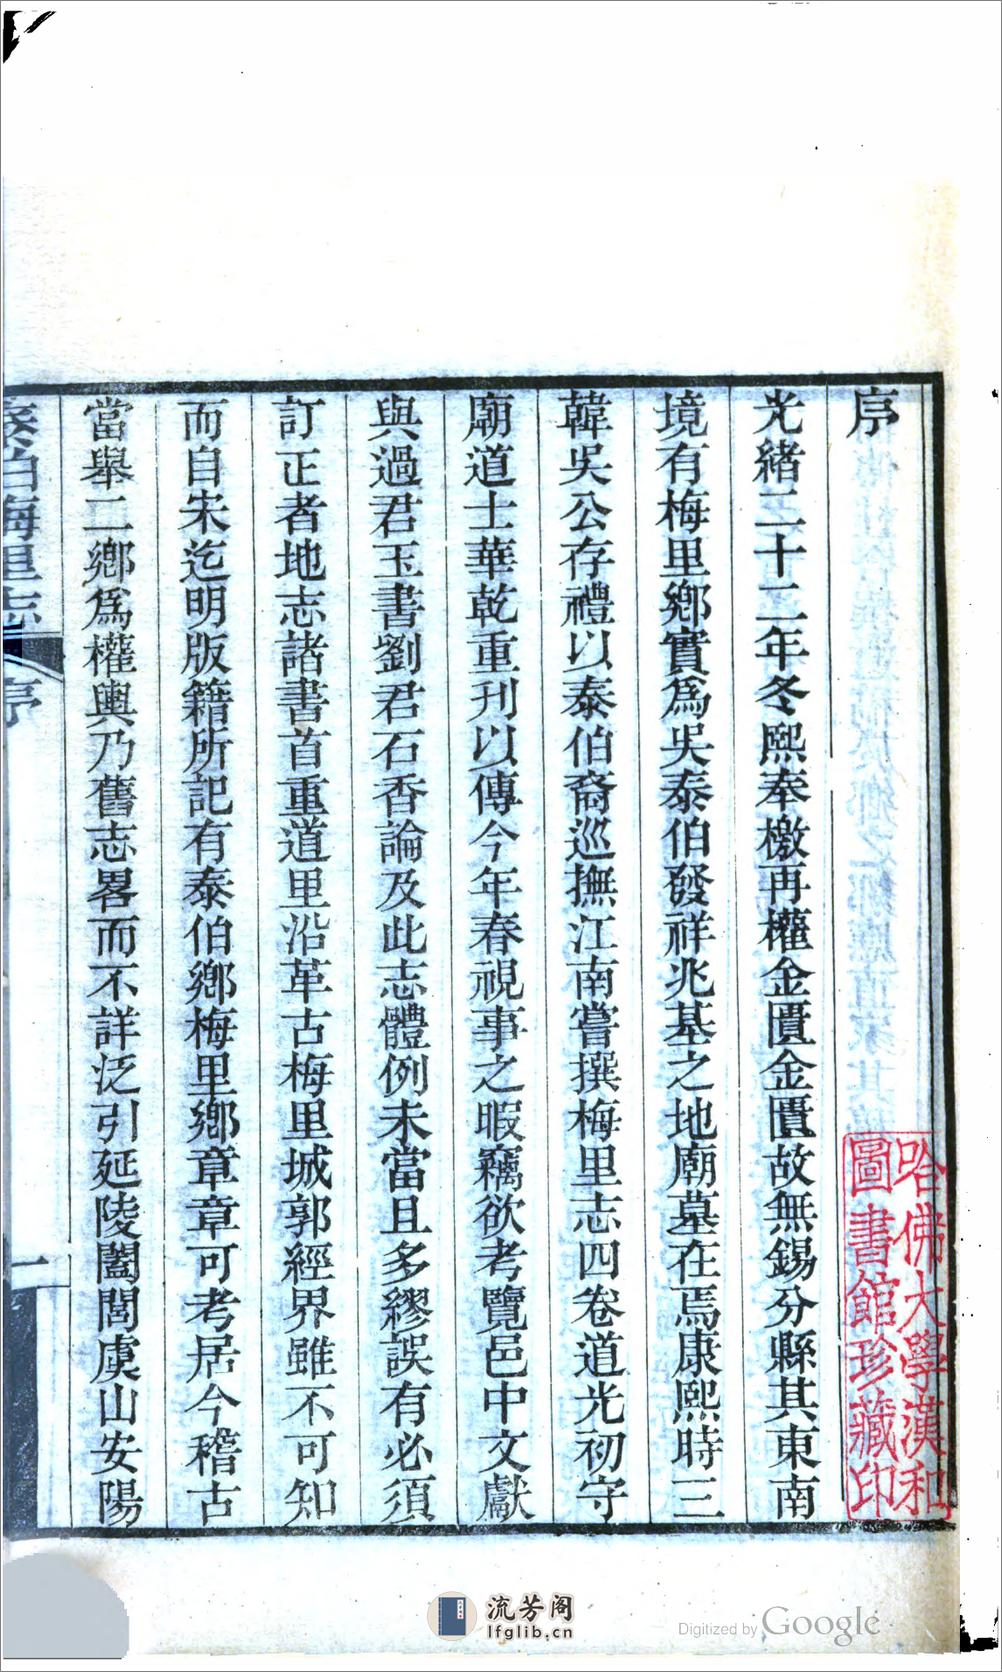 序
光緒二十二年冬熙奉檄再權金匱金匱故無錫分縣其東南
境有梅里鄉實爲吳泰伯發祥兆基之地廟墓在焉康熙時三
韓吳公存禮以泰伯裔巡撫江南嘗撰梅里志四卷道光初守
廟道士華乾重刊以傳今年春視事之暇竊欲考覽邑中文獻
與過君玉書劉君石香論及此志體例未當且多繆誤有必須
訂正者地志諸書首重道里沿革古梅里城郭經界雖不可知
而自宋迄明版籍所記有泰伯鄉梅里鄉章章可考居今稽古
當舉二鄉爲權輿乃舊志畧而不詳泛引延陵闔閭虞山安陽
泰伯梅里志 序 一
哈佛大學漢和
圖書館珍藏印
流芳阁
lfglib.cn
Digitized by Google